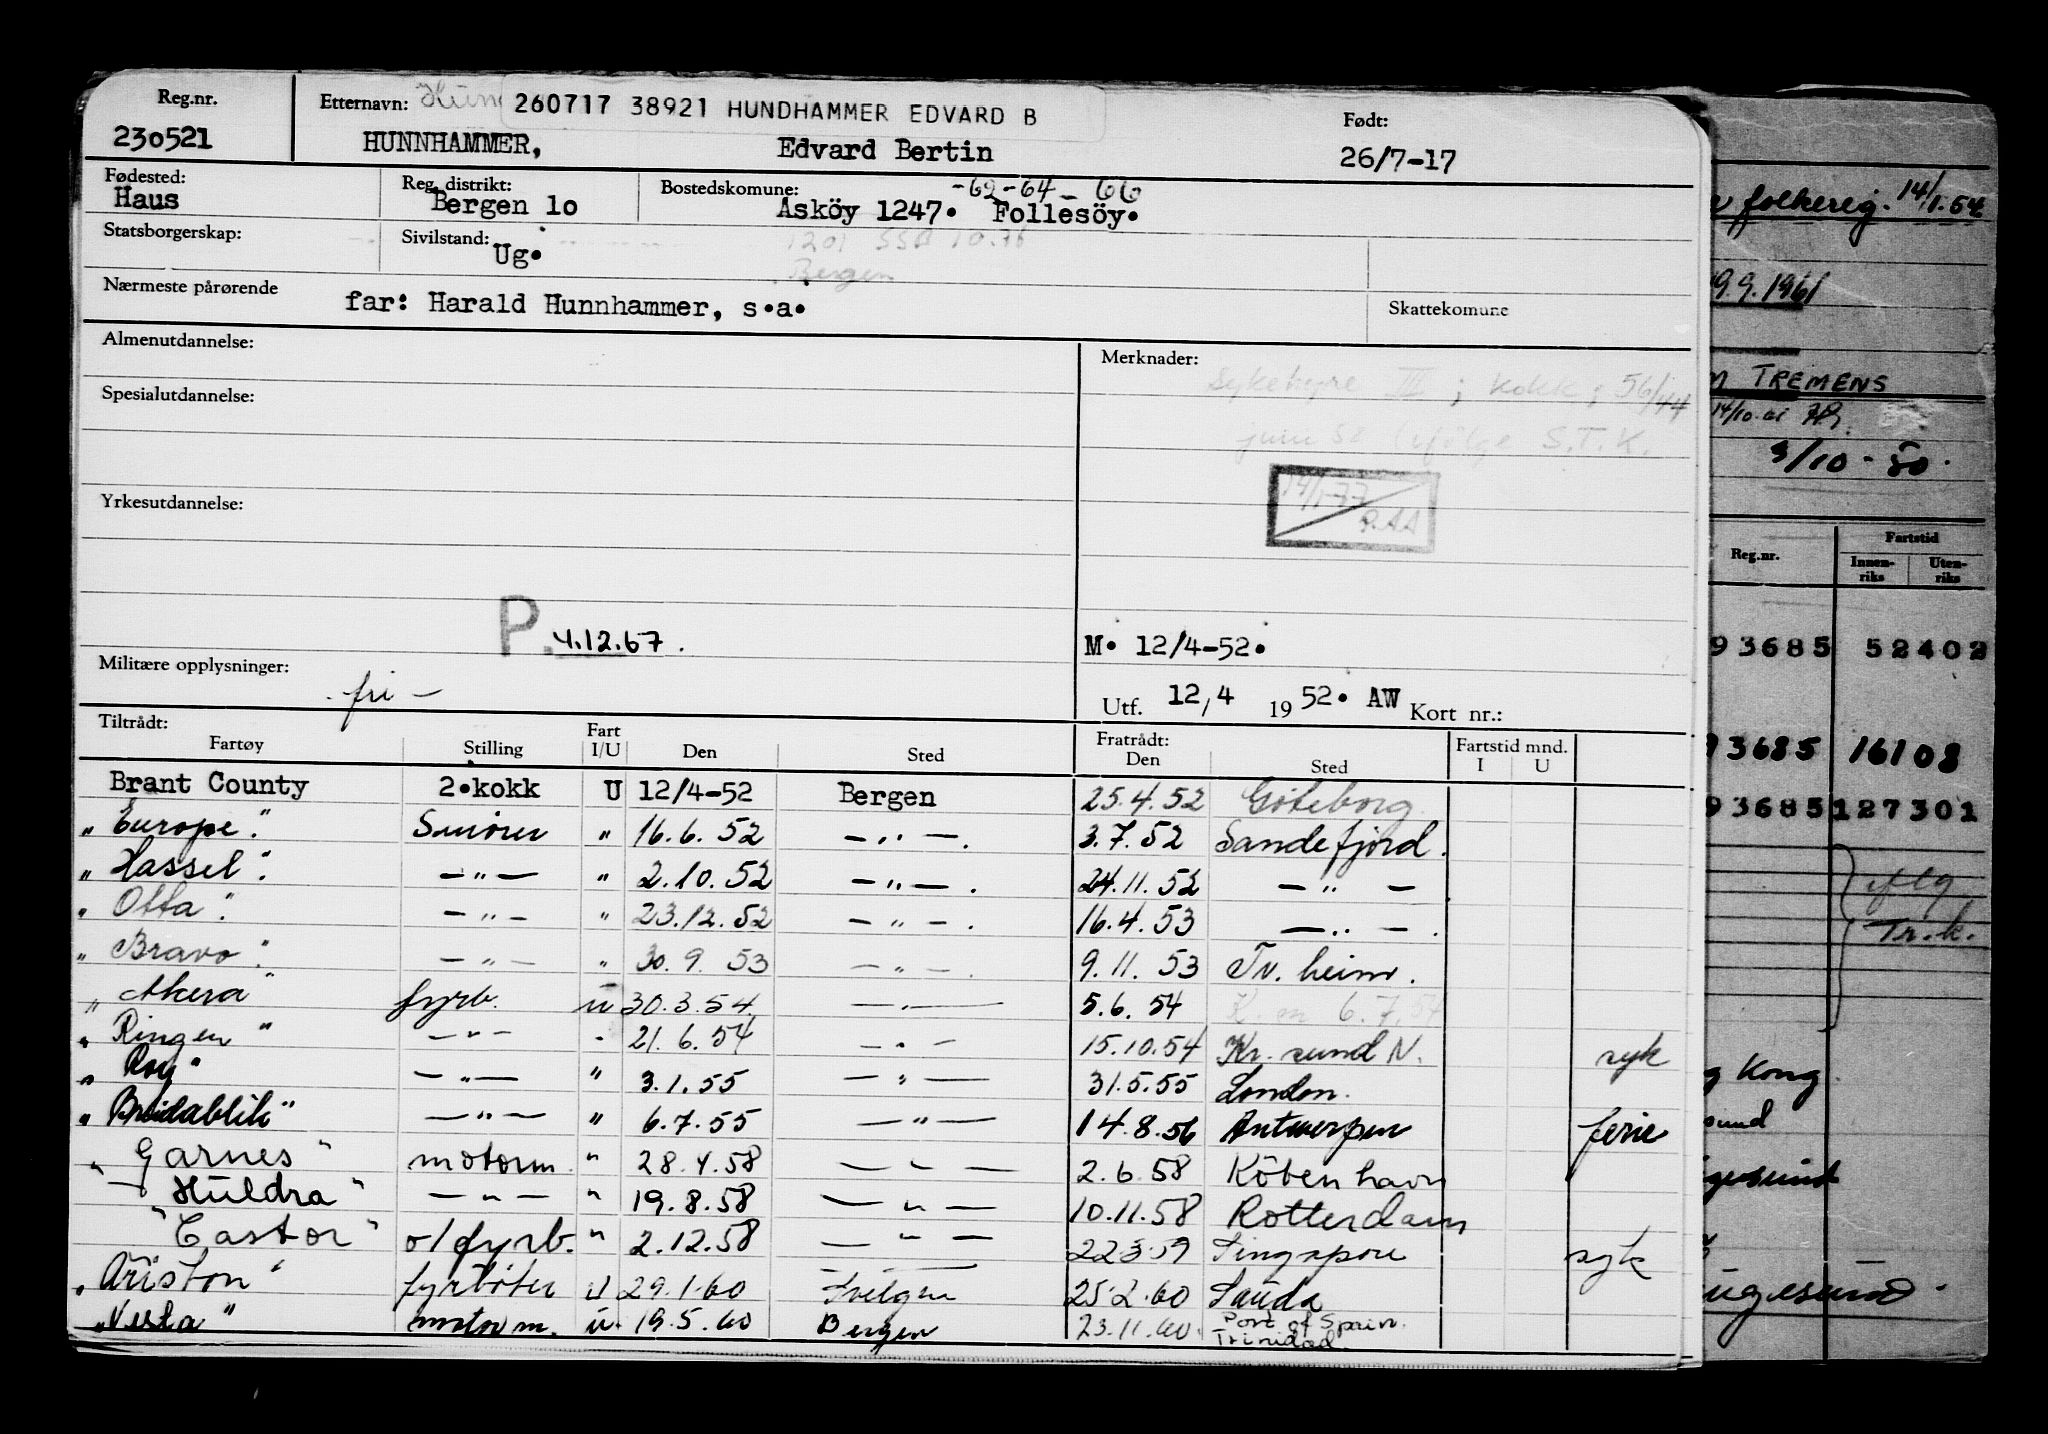 Reg.nr. Etternavn: 260717 38921 HUNDHAMMER EDVARD B Født:
230521 HUNNHAMMER, Edvard Bertin 26/7-17
Fødested: Reg. distrikt: Bostedskomune: -62-64-66
Haus Bergen 1o Asköy 1247. Follesöy.
Statsborgerskap: Sivilstand: Ug. 1201 SSB 10.76
Bergen
Nærmeste pårørende far: Harald Hunnhammer, s.a. Skattekomune
Almenutdannelse: Merknader:
Sykehyre III ; kokk ; 56/44
Spesialutdannelse:
juni 58 ifølge S.T.K.
14/1-77
R.AA
Yrkesutdannelse:
P. 4.12.67. M. 12/4-52.
Militære opplysninger: - fri - Utf. 12/4 19 52. AW Kort nr.:
Tiltrådt: Fart Fratrådt: Fartstid mnd.
Fartøy Stilling I/U Den Sted Den Sted I U
Brant County 2.kokk U 12/4-52 Bergen 25.4.52 Göteborg
" Europe." Smörer " 16.6.52 — " —. 3.7.52 Sandefjord.
" Hassel." — " — " 2.10.52 — " —. 24.11.52 — " —
" Otta." — " — " 23.12.52 — " —. 16.4.53 — " —.
" Bravo." — " — " 30.9.53 — " —. 9.11.53 Tr. heim.
" Akera" fyrb. u 30.3.54 — " — 5.6.54 K. m 6.7.54
" Ringen" — " — " 21.6.54 — " — 15.10.54 Kr. sund N. syk
" Roy" — " — " 3.1.55 — " — 31.5.55 London.
" Breidablik" — " — " 6.7.55 — " — 14.8.56 Antwerpen ferie
" Garnes" motorm " 28.4.58 — " — 2.6.58 Köbenhavn
" Huldra" — " — " 19.8.58 — " — 10.11.58 Rotterdam
" Castor" o/fyrb. " 2.12.58 — " — 22.3.59 Singapore syk
" Ariston" fyrböter u 29.1.60 Svelgen 25.2.60 Sauda
" Vesta" motor m. u. 19.5.60 Bergen 23.11.60 Port of Spain.
Trinidad.
folkereg. 14/1.64
9.9.1961
TREMENS
14/10.61
3/10-50.
Reg.nr. Fartstid
Innen-riks Uten-riks
93685 52402
93685 16108
93685 127301
Tr.k.
Kong
sund
gesund
ugesund.